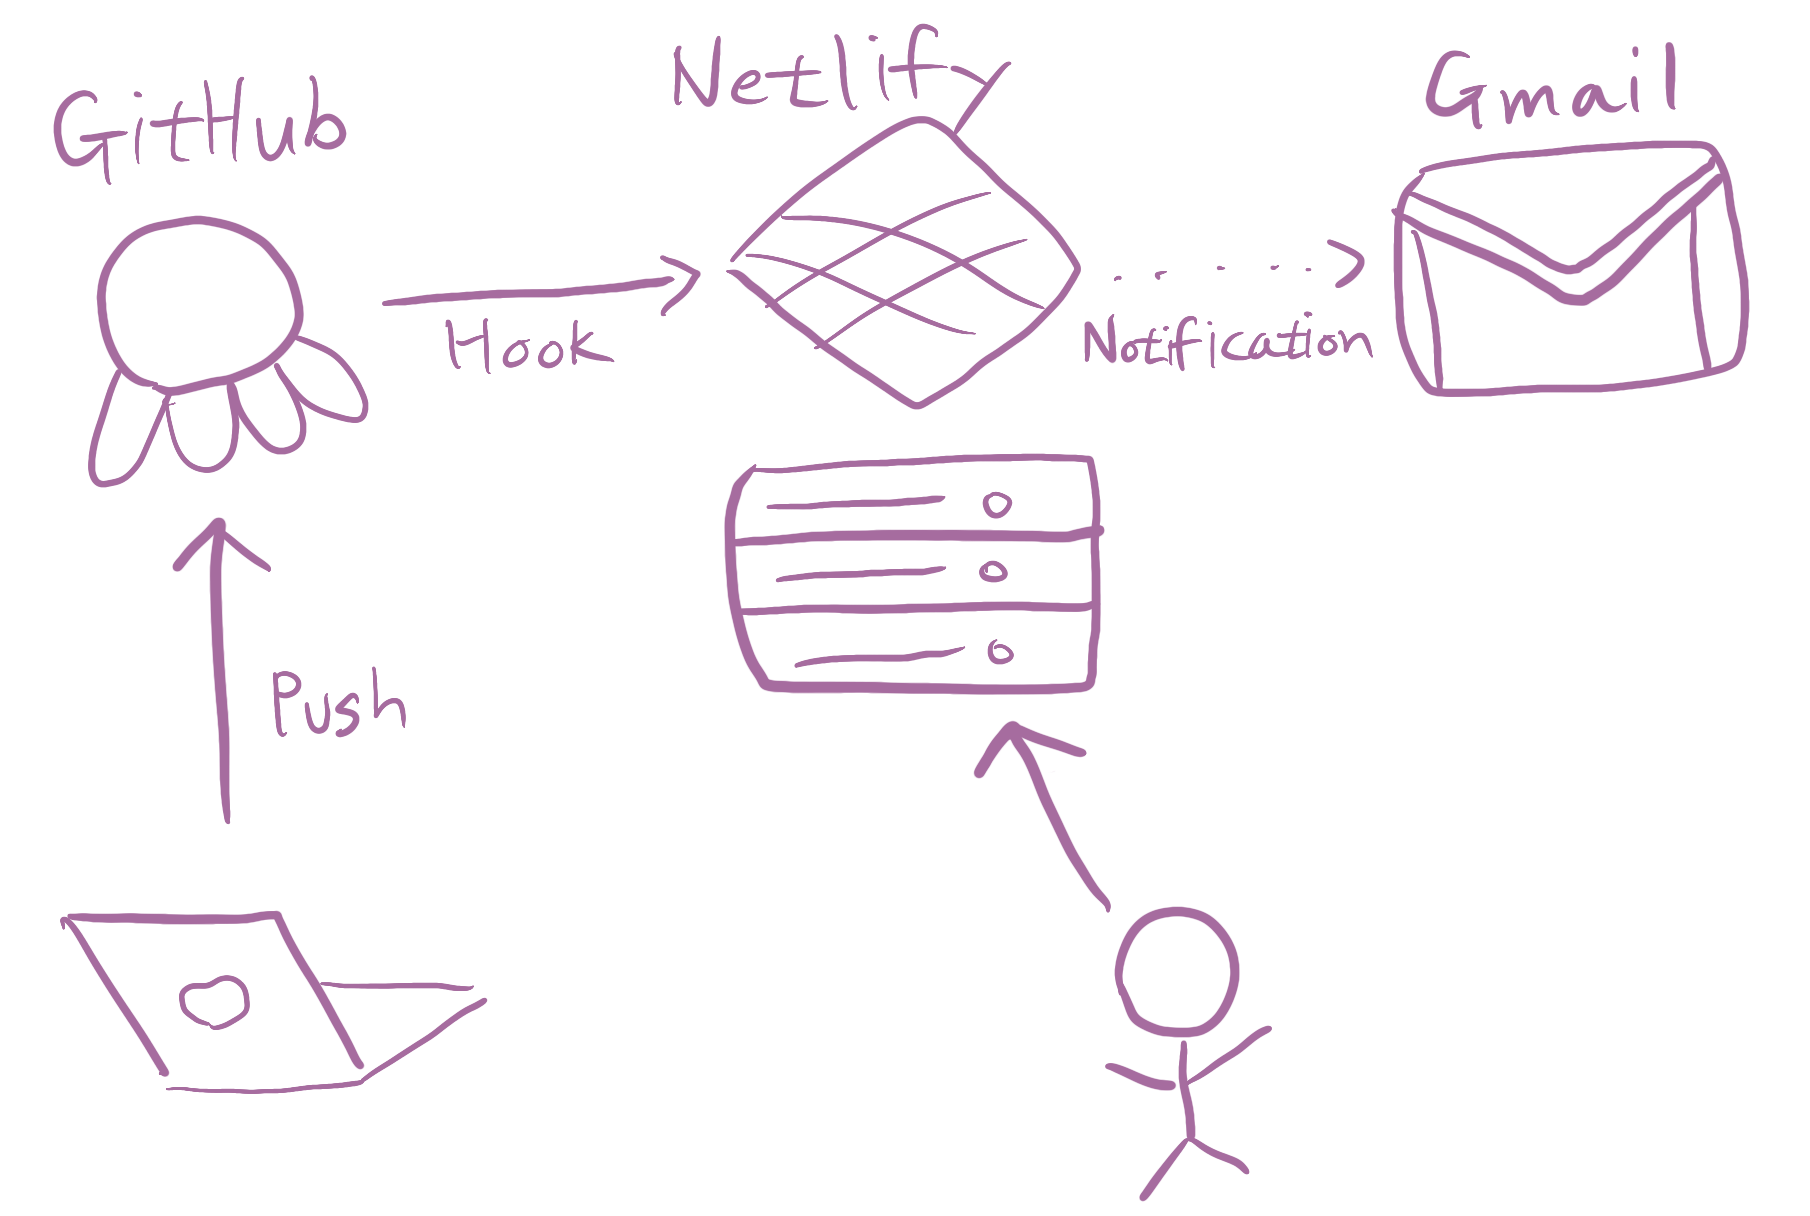 GitHub
Netlify
Gmail
Hook
Notification
Push